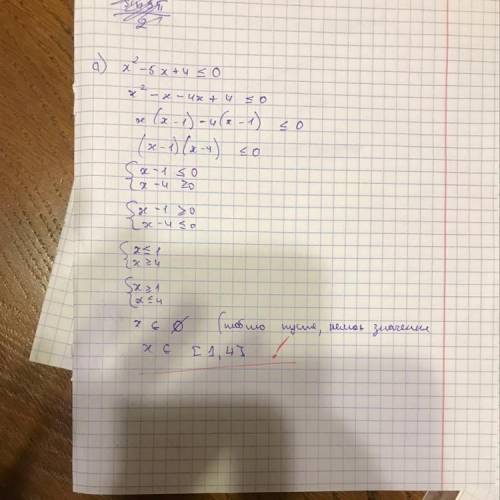 2
а) x² - 5x + 4 ≤ 0
x² - x - 4x + 4 ≤ 0
x(x-1) - 4(x-1) ≤ 0
(x-1)(x-4) ≤ 0
{x-1 ≤ 0
{x-4 ≥ 0
{x-1 ≥ 0
{x-4 ≤ 0
{x ≤ 1
{x ≥ 4
{x ≥ 1
{x ≤ 4
x ∈ ∅ (тобто пусте, немає значення
x ∈ [1,4]